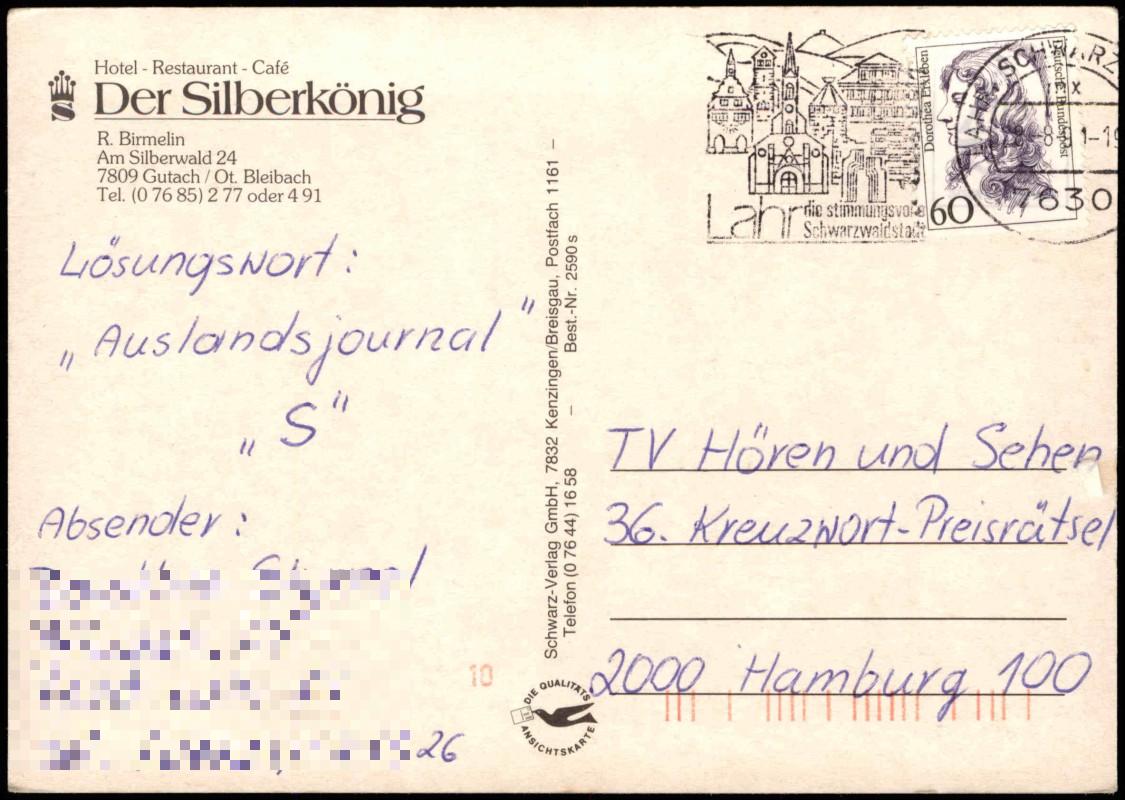 Hotel - Restaurant - Café
Der Silberkönig
R. Birmelin
Am Silberwald 24
7809 Gutach / Ot. Bleibach
Tel. (0 76 85) 2 77 oder 4 91
Lösungswort:
„Auslandsjournal"
„S"
Absender:
26
Schwarz-Verlag GmbH, 7832 Kenzingen/Breisgau, Postfach 1161 –
Telefon (0 76 44) 16 58 – Best.-Nr. 2590 s
10
DIE QUALITÄTS
ANSICHTSKARTE
Lahr die stimmungsvolle
Schwarzwaldstadt
Dorothea Erxleben
Deutsche Bundespost
60
LAHR, SCHWARZ
7630
TV Hören und Sehen
36. Kreuzwort-Preisrätsel
2000 Hamburg 100